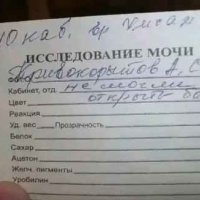 10 каб. вр
ИССЛЕДОВАНИЕ МОЧИ
Кривокорытов А. С
Кабинет, отд. не смогли
Цвет открыть ба
Реакция
Уд. вес Прозрачность
Белок
Сахар
Ацетон
Желч. пигменты
Уробилин